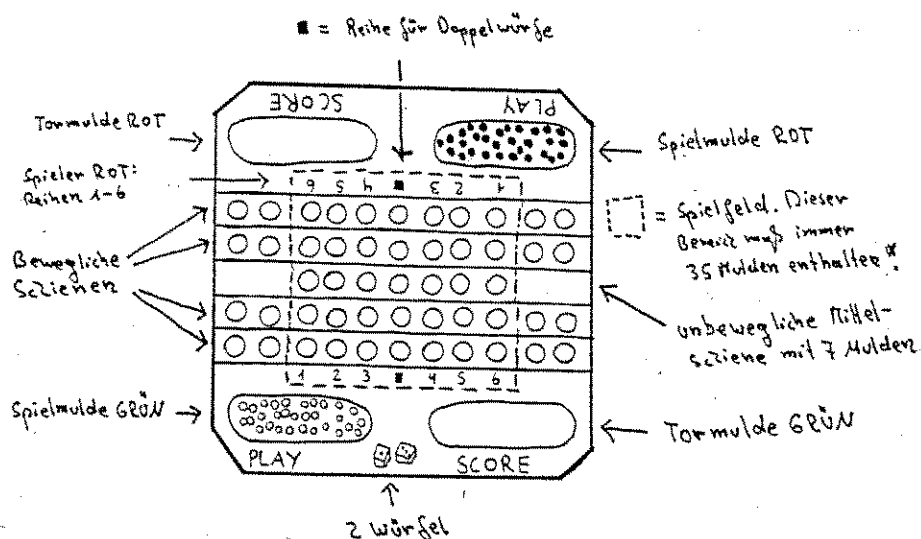 ■ = Reihe für Doppelwürfe
SCORE
PLAY
Tormulde ROT
Spielmulde ROT
Spieler ROT:
Reihen 1-6
6 5 4 ■ 3 2 1
= Spielfeld. Dieser
Bereich muß immer
35 Mulden enthalten*.
Bewegliche
Schienen
unbewegliche Mittel-
schiene mit 7 Mulden
1 2 3 ■ 4 5 6
Spielmulde GRÜN
Tormulde GRÜN
PLAY
SCORE
2 Würfel